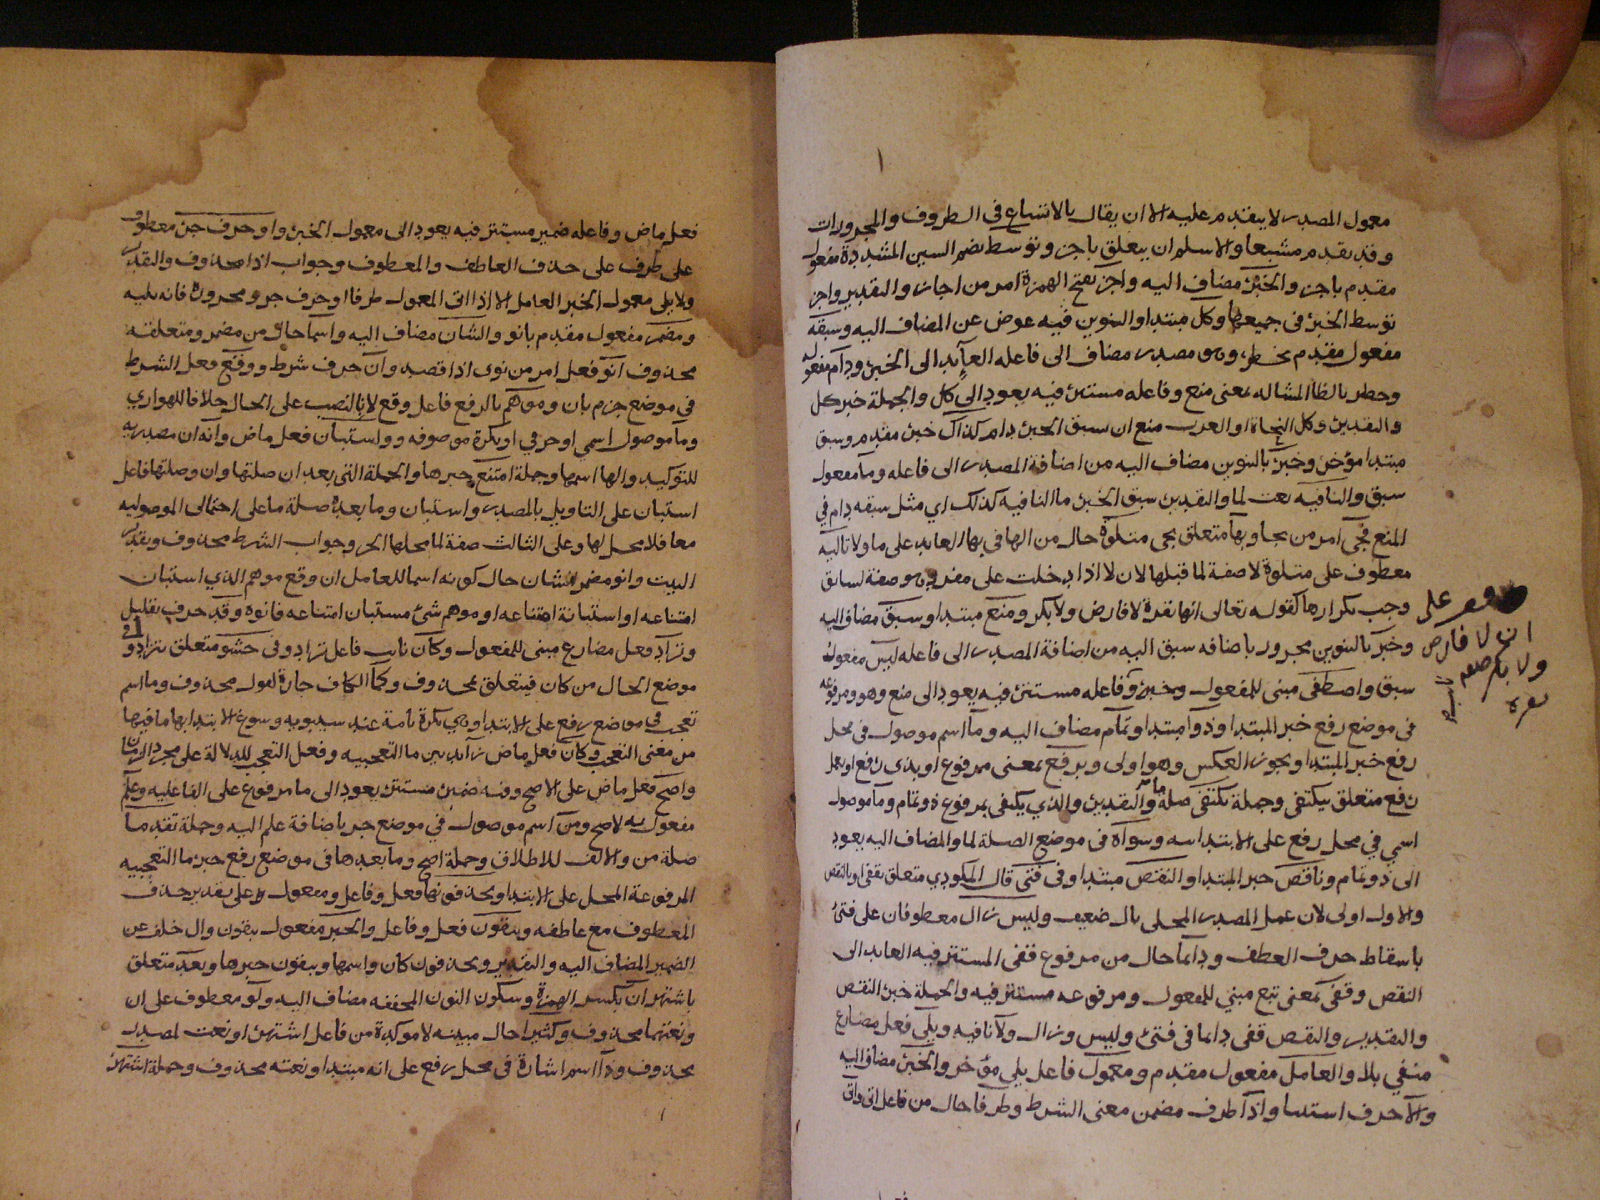 معمول المصدر لا يتقدم عليه الا ان يقال بالاتساع في الظروف والمجرورات
وقد يقدم مشبعا والاسلم ان يتعلق باجز وتوسط بضم السين المشددة مفعول
مقدم باجز والخبر مضاف اليه واجز بفتح الهمزة امر من اجاز والتقدير واجز
توسط الخبر في جميعها وكل مبتدا والتنوين فيه عوض عن المضاف اليه وسبقه
مفعول مقدم بحظر وهو مصدر مضاف الى فاعله العآيد الى الخبر ودام مفعوله
وحظر بالظا المشاله بمعنى منع وفاعله مستتر فيه يعود الى كل والجملة خبر كل
والتقدير وكل النحاة او العرب منع ان سبق الخبر دام كذاك خبر مقدم وسبق
مبتدا مؤخر وخبر بالتنوين مضاف اليه من اضافة المصدر الى فاعله وما مفعول
سبق والنافيه نعت لما والتقدير سبق الخبر ما النافيه كذلك اي مثل سبقه دام في
المنع فجي امر من جا وبها متعلق بجي متلوة حال من الها في بها العايد على ما ولا تاليه
معطوف على متلوة لا صفة لما قبلها لان لا اذا دخلت على مفرد وهو صفة لسابق
وجب تكرارها كقوله تعالى انها بقرة لا فارض ولا بكر ومنع مبتدا وسبق مضاف اليه
وخبر بالتنوين مجرور باضافه سبق اليه من اضافة المصدر الى فاعله ليس مفعول
سبق واصطفى مبني للمفعول وخبر وفاعله مستتر فيه يعود الى منع وهو ومرفوعه
في موضع رفع خبر المبتدا وذو مبتدا وتمام مضاف اليه وما اسم موصول في محل
رفع خبر المبتدا ويجوز العكس وهو اولى وبرفع بمعنى مرفوع او بذي رفع او بعمل
رفع متعلق بيكتفي وجملة يكتفي صلة ما والتقدير والذي يكتفي بمرفوع ذو تمام وما موصول
اسمي في محل رفع على الابتدا وسواه في موضع الصلة لما والمضاف اليه يعود
الى ذو تمام وناقص خبر المبتدا والنقص مبتدا وفي فتئ قال المكودي متعلق بقفي او بالنقص
والاول اولى لان عمل المصدر المحلى بال ضعيف وليس زال معطوفان على فتئ
باسقاط حرف العطف ودايما حال من مرفوع قفي المستتر فيه العايد الى
النقص وقفي بمعنى تبع مبني للمفعول ومرفوعه مستتر فيه والجملة خبر النقص
والتقدير والنقص قفي دايما في فتئ وليس وزال ولا نافيه ويلي فعل مضارع
منفي بلا والعامل مفعول مقدم ومعمول فاعل يلي مؤخر والخبر مضاف اليه
والا حرف استثنا واذا ظرف مضمن معنى الشرط وظرفا حال من فاعل اتى واتى
على
ان لا فارض
ولا بكر صفه
بقرة
فعل ماض وفاعله ضمير مستتر فيه يعود الى معمول الخبر واو حرف جر معطوف
على ظرف على حذف العاطف والمعطوف وجواب اذا محذوف والتقدير
ولا يلي معمول الخبر العامل الا اذا اتى المعمول ظرفا او حرف جر ومجروره فانه يليه
ومضمر مفعول مقدم بانو والشان مضاف اليه واسما حال من مضمر ومتعلقه
محذوف آنو فعل امر من نوى اذا قصد وان حرف شرط ووقع فعل الشرط
في موضع جزم بان وموهم بالرفع فاعل وقع لا بالنصب على الحال خلافا للهواري
وما موصول اسمي او حرفي او نكرة موصوفه وواستبان فعل ماض وانه ان مصدريه
للتوكيد والها اسمها وجملة امتنع خبرها والجملة التي بعد ان صلتها وان وصلتها فاعل
استبان على التاويل بالمصدر واستبان وما بعده صلة ما على احتمالي الموصوليه
معا فلا محل لها وعلى الثالث صفة لما محلها الجر وجواب الشرط محذوف وتقدير
البيت وانو مضمر الشان حال كونه اسما للعامل ان وقع موهم الذي استبان
امتناعه او استبانة امتناعه او موهم شئ مستبان امتناعه فانوه وقد حرف تقليل
وتزاد فعل مضارع مبني للمفعول وكان نايب فاعل تزاد وفي حشو متعلق بتزاد او في
موضع الحال من كان فيتعلق بمحذوف وكما الكاف جارة لقول محذوف وما اسم
تعجب في موضع رفع على الابتدا وهي نكرة تامة عند سيبويه وسوغ الابتدا بها ما فيها
من معنى التعجب وكان فعل ماض زآيد بين ما التعجبيه وفعل التعجب للدلالة على مجرد الزمان
واصح فعل ماض على الاصح وفيه ضمير مستتر يعود الى ما مرفوع على الفاعليه وعلم
مفعول به لاصح ومن اسم موصول في موضع جر باضافة علم اليه وجملة تقدما
صلة من والالف للاطلاق وجملة اصح وما بعدها في موضع رفع خبر ما التعجبيه
المرفوعة المحل على الابتدا ويحذفونها فعل وفاعل ومفعول وعلى تقدير حذف
المعطوف مع عاطفه ويبقون فعل وفاعل والخبر مفعول يبقون وال خلف عن
الضمير المضاف اليه والتقدير ويحذفون كان واسمها ويبقون خبرها وبعد متعلق
باشتهر ان بكسر الهمزة وسكون النون المخففه مضاف اليه ولو معطوف على ان
ونعتهما محذوف وكثيرا حال مبينه لا موكدة من فاعل اشتهر او نعت لمصدر
محذوف وذا اسم اشارة في محل رفع على انه مبتدا ونعته محذوف وجملة اشتهر